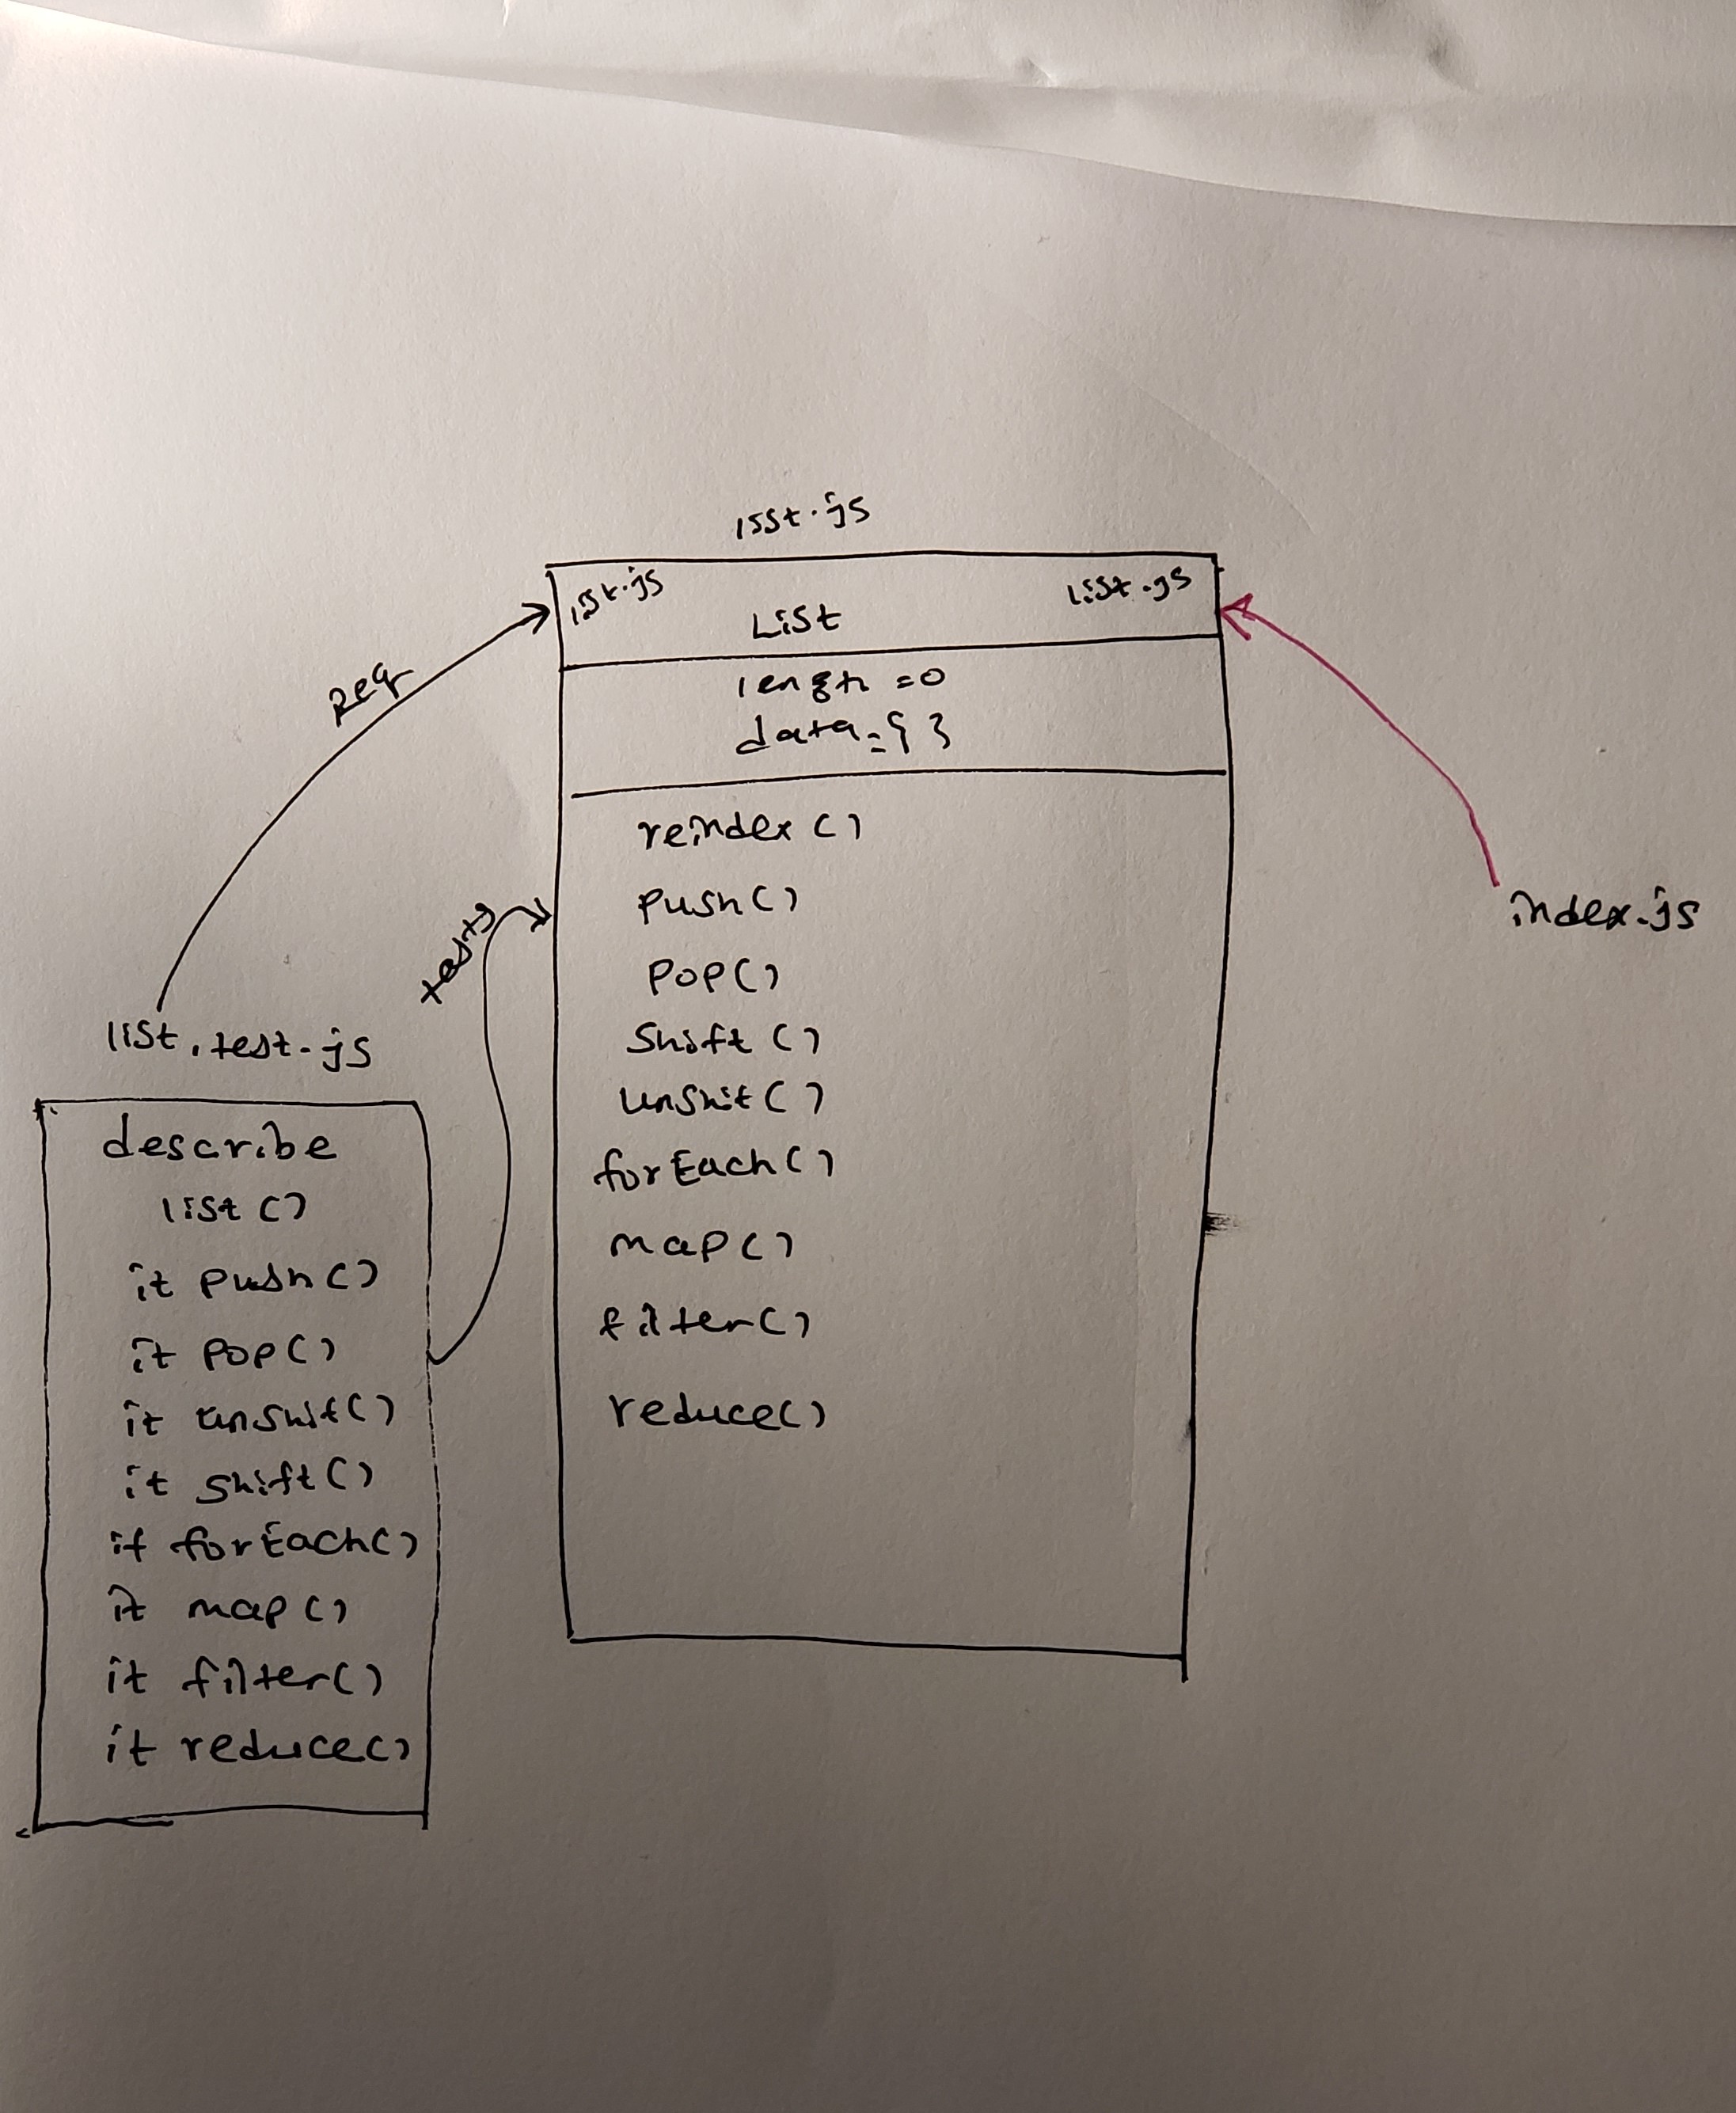 list.js
list.js
List
list.js
length =0
data={ }
req
reindex ()
push()
pop()
Shift ()
unshit()
forEach()
map()
filter()
reduce()
tests
index.js
list.test.js
describe
list ()
it push()
it pop()
it unshit()
it shift()
it forEach()
it map()
it filter()
it reduce()